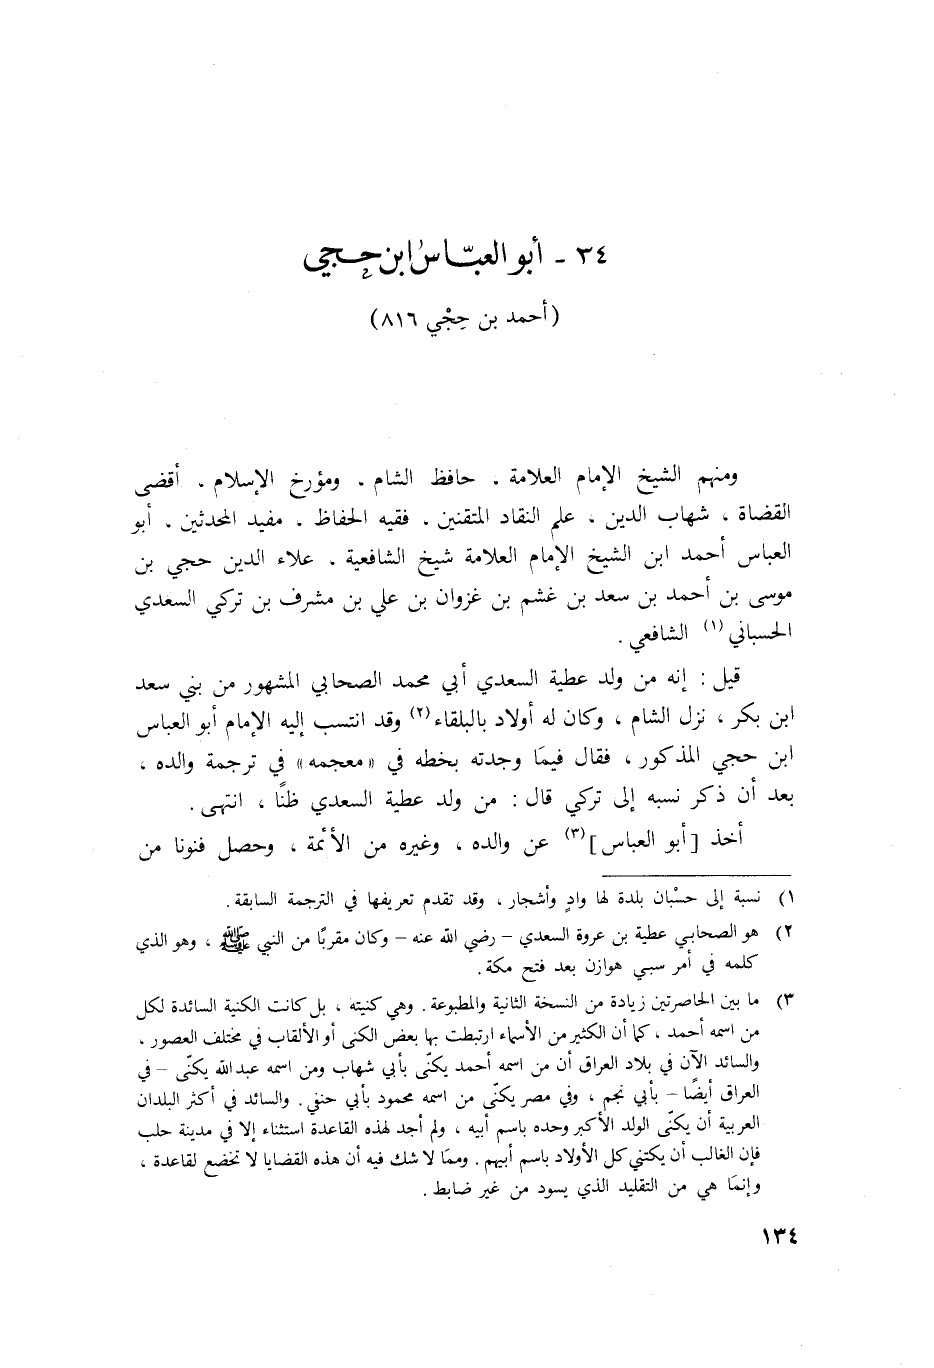 ٣٤ - أبو العبّاس ابن حجي
(أحمد بن حِجْي ٨١٦)
ومنهم الشيخ الإمام العلامة ، حافظ الشام ، ومؤرخ الإسلام ، أقضى
القضاة ، شهاب الدين ، علم النقاد المتقنين ، فقيه الحفاظ ، مفيد المحدثين ، أبو
العباس أحمد ابن الشيخ الإمام العلامة شيخ الشافعية ، علاء الدين حجي بن
موسى بن أحمد بن سعد بن غشم بن غزوان بن علي بن مشرف بن تركي السعدي
الحسباني (١) الشافعي .
قيل : إنه من ولد عطية السعدي أبي محمد الصحابي المشهور من بني سعد
ابن بكر ، نزل الشام ، وكان له أولاد بالبلقاء (٢) وقد انتسب إليه الإمام أبو العباس
ابن حجي المذكور ، فقال فيمَا وجدته بخطه في «معجمه» في ترجمة والده ،
بعد أن ذكر نسبه إلى تركي قال : من ولد عطية السعدي ظنًا ، انتهى .
أخذ [أبو العباس] (٣) عن والده ، وغيره من الأئمة ، وحصل فنونا من
١) نسبة إلى حسْبان بلدة لها وادٍ وأشجار ، وقد تقدم تعريفها في الترجمة السابقة .
٢) هو الصحابي عطية بن عروة السعدي – رضي الله عنه – وكان مقربًا من النبي ﷺ ، وهو الذي
كلمه في أمر سبي هوازن بعد فتح مكة .
٣) ما بين الحاصرتين زيادة من النسخة الثانية والمطبوعة . وهي كنيته ، بل كانت الكنية السائدة لكل
من اسمه أحمد ، كما أن الكثير من الأسماء ارتبطت بها بعض الكنى أو الألقاب في مختلف العصور ،
والسائد الآن في بلاد العراق أن من اسمه أحمد يكنّى بأبي شهاب ومن اسمه عبدالله يكنّى – في
العراق أيضًا – بأبي نجم ، وفي مصر يكنّى من اسمه محمود بأبي حنفي . والسائد في أكثر البلدان
العربية أن يكنّى الولد الأكبر وحده باسم أبيه ، ولم أجد لهذه القاعدة استثناء إلا في مدينة حلب
فإن الغالب أن يكتني كل الأولاد باسم أبيهم . وممَا لا شك فيه أن هذه القضايا لا تخضع لقاعدة ،
وإنمَا هي من التقليد الذي يسود من غير ضابط .
١٣٤